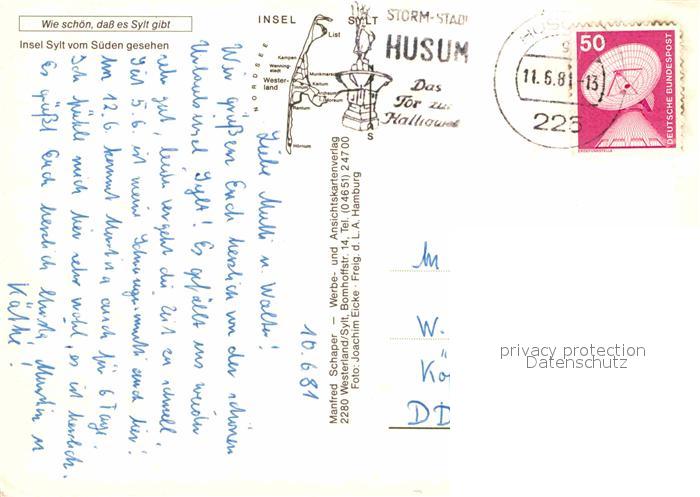 Wie schön, daß es Sylt gibt
Insel Sylt vom Süden gesehen
INSEL SYLT
NORDSEE
List
Kampen
Wenning-
stedt
Munkmarsch
Wester-
land
Keitum
Morsum
Rantum
Hörnum
STORM-STADT
HUSUM
Das
Tor zur
Halligwelt
HUSUM
11.6.81-13
225
50
DEUTSCHE BUNDESPOST
ERDEFUNKSTELLE
10.6.81
Liebe Mutti u. Walter!
Wir grüßen Euch herzlich von der schönen
Urlaubsinsel Sylt! Es gefällt uns wieder
sehr gut, leider vergeht die Zeit zu schnell.
Seit 5.6. ist meine Schwiegermutti auch hier!
Am 12.6. kommt auch für 6 Tage!
Ich fühle mich hier sehr wohl, es ist herrlich.
Es grüßt Euch herzlich u.
Käthe!
Manfred Schaper — Werbe- und Ansichtskartenverlag
2280 Westerland/Sylt, Bomhoffstr. 14, Tel. (04651) 24700
Foto: Joachim Eicke · Freig. d. L.A. Hamburg
W.
Kö
DD
privacy protection
Datenschutz